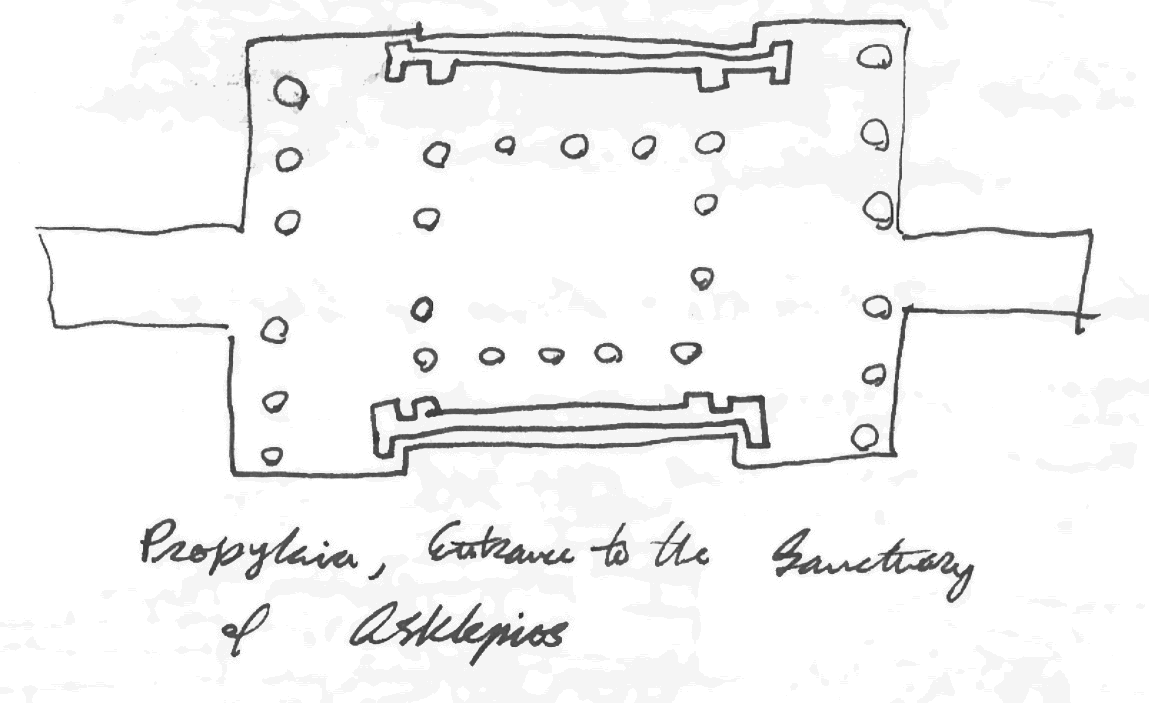 Propylaia, Entrance to the Sanctuary
of Asklepios